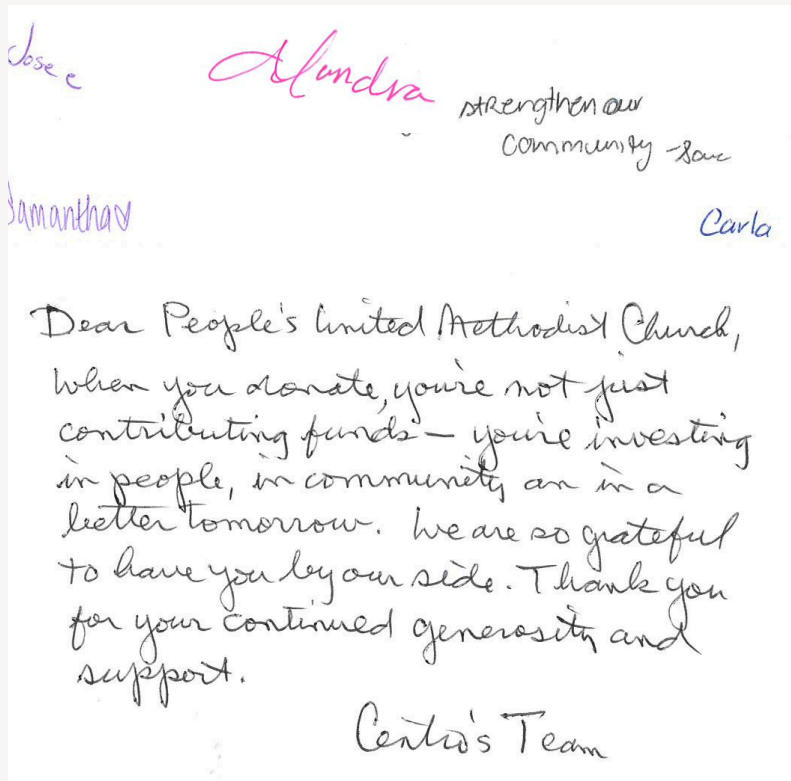 Josee
Alondra
strengthen our
community
Samantha
Carla
Dear People's United Methodist Church,
When you donate, you're not just
contributing funds — you're investing
in people, in community an in a
better tomorrow. We are so grateful
to have you by our side. Thank you
for your continued generosity and
support.
Centro's Team